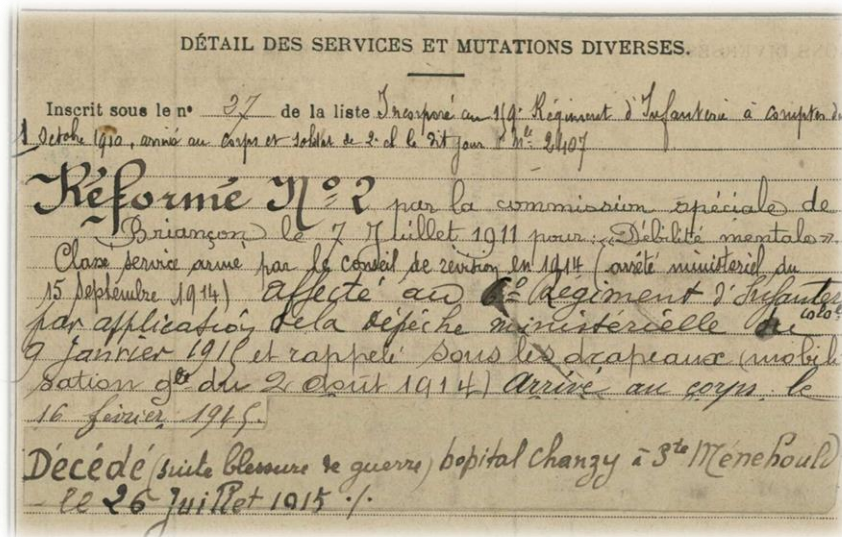 DÉTAIL DES SERVICES ET MUTATIONS DIVERSES.
Inscrit sous le n° 27 de la liste Incorporé au 159e Régiment d'Infanterie à compter du
1 Octobre 1910, arrivé au corps et soldat de 2e cl le dit jour nle 2407
Réformé No 2 par la commission spéciale de
Briançon le 7 Juillet 1911 pour: "Débilité mentale".
Classé service armé par le conseil de révision en 1914 (arrêté ministériel du
15 Septembre 1914) affecté au 6e Régiment d'Infanterie
colol
par application de la dépêche ministérielle du
9 Janvier 1915 et rappelé sous les drapeaux (mobili
sation gle du 2 Août 1914) Arrivé au corps le
16 février 1915.
Décédé (suite blessure de guerre) hôpital Chanzy à Ste Ménehould
le 26 Juillet 1915 ./.